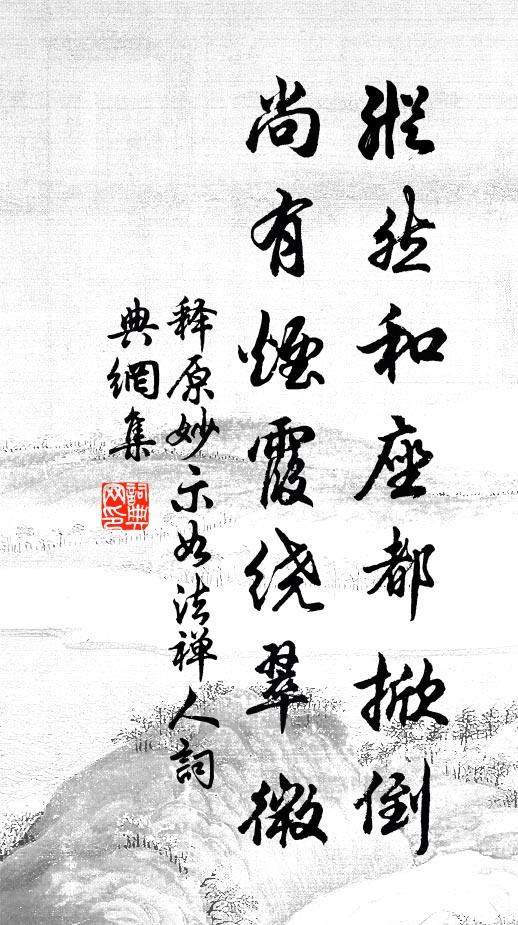 縱然和座都掀倒
尚有煙霞绕翠微
释原妙示如法禅人詞
典網集
詞典
网印